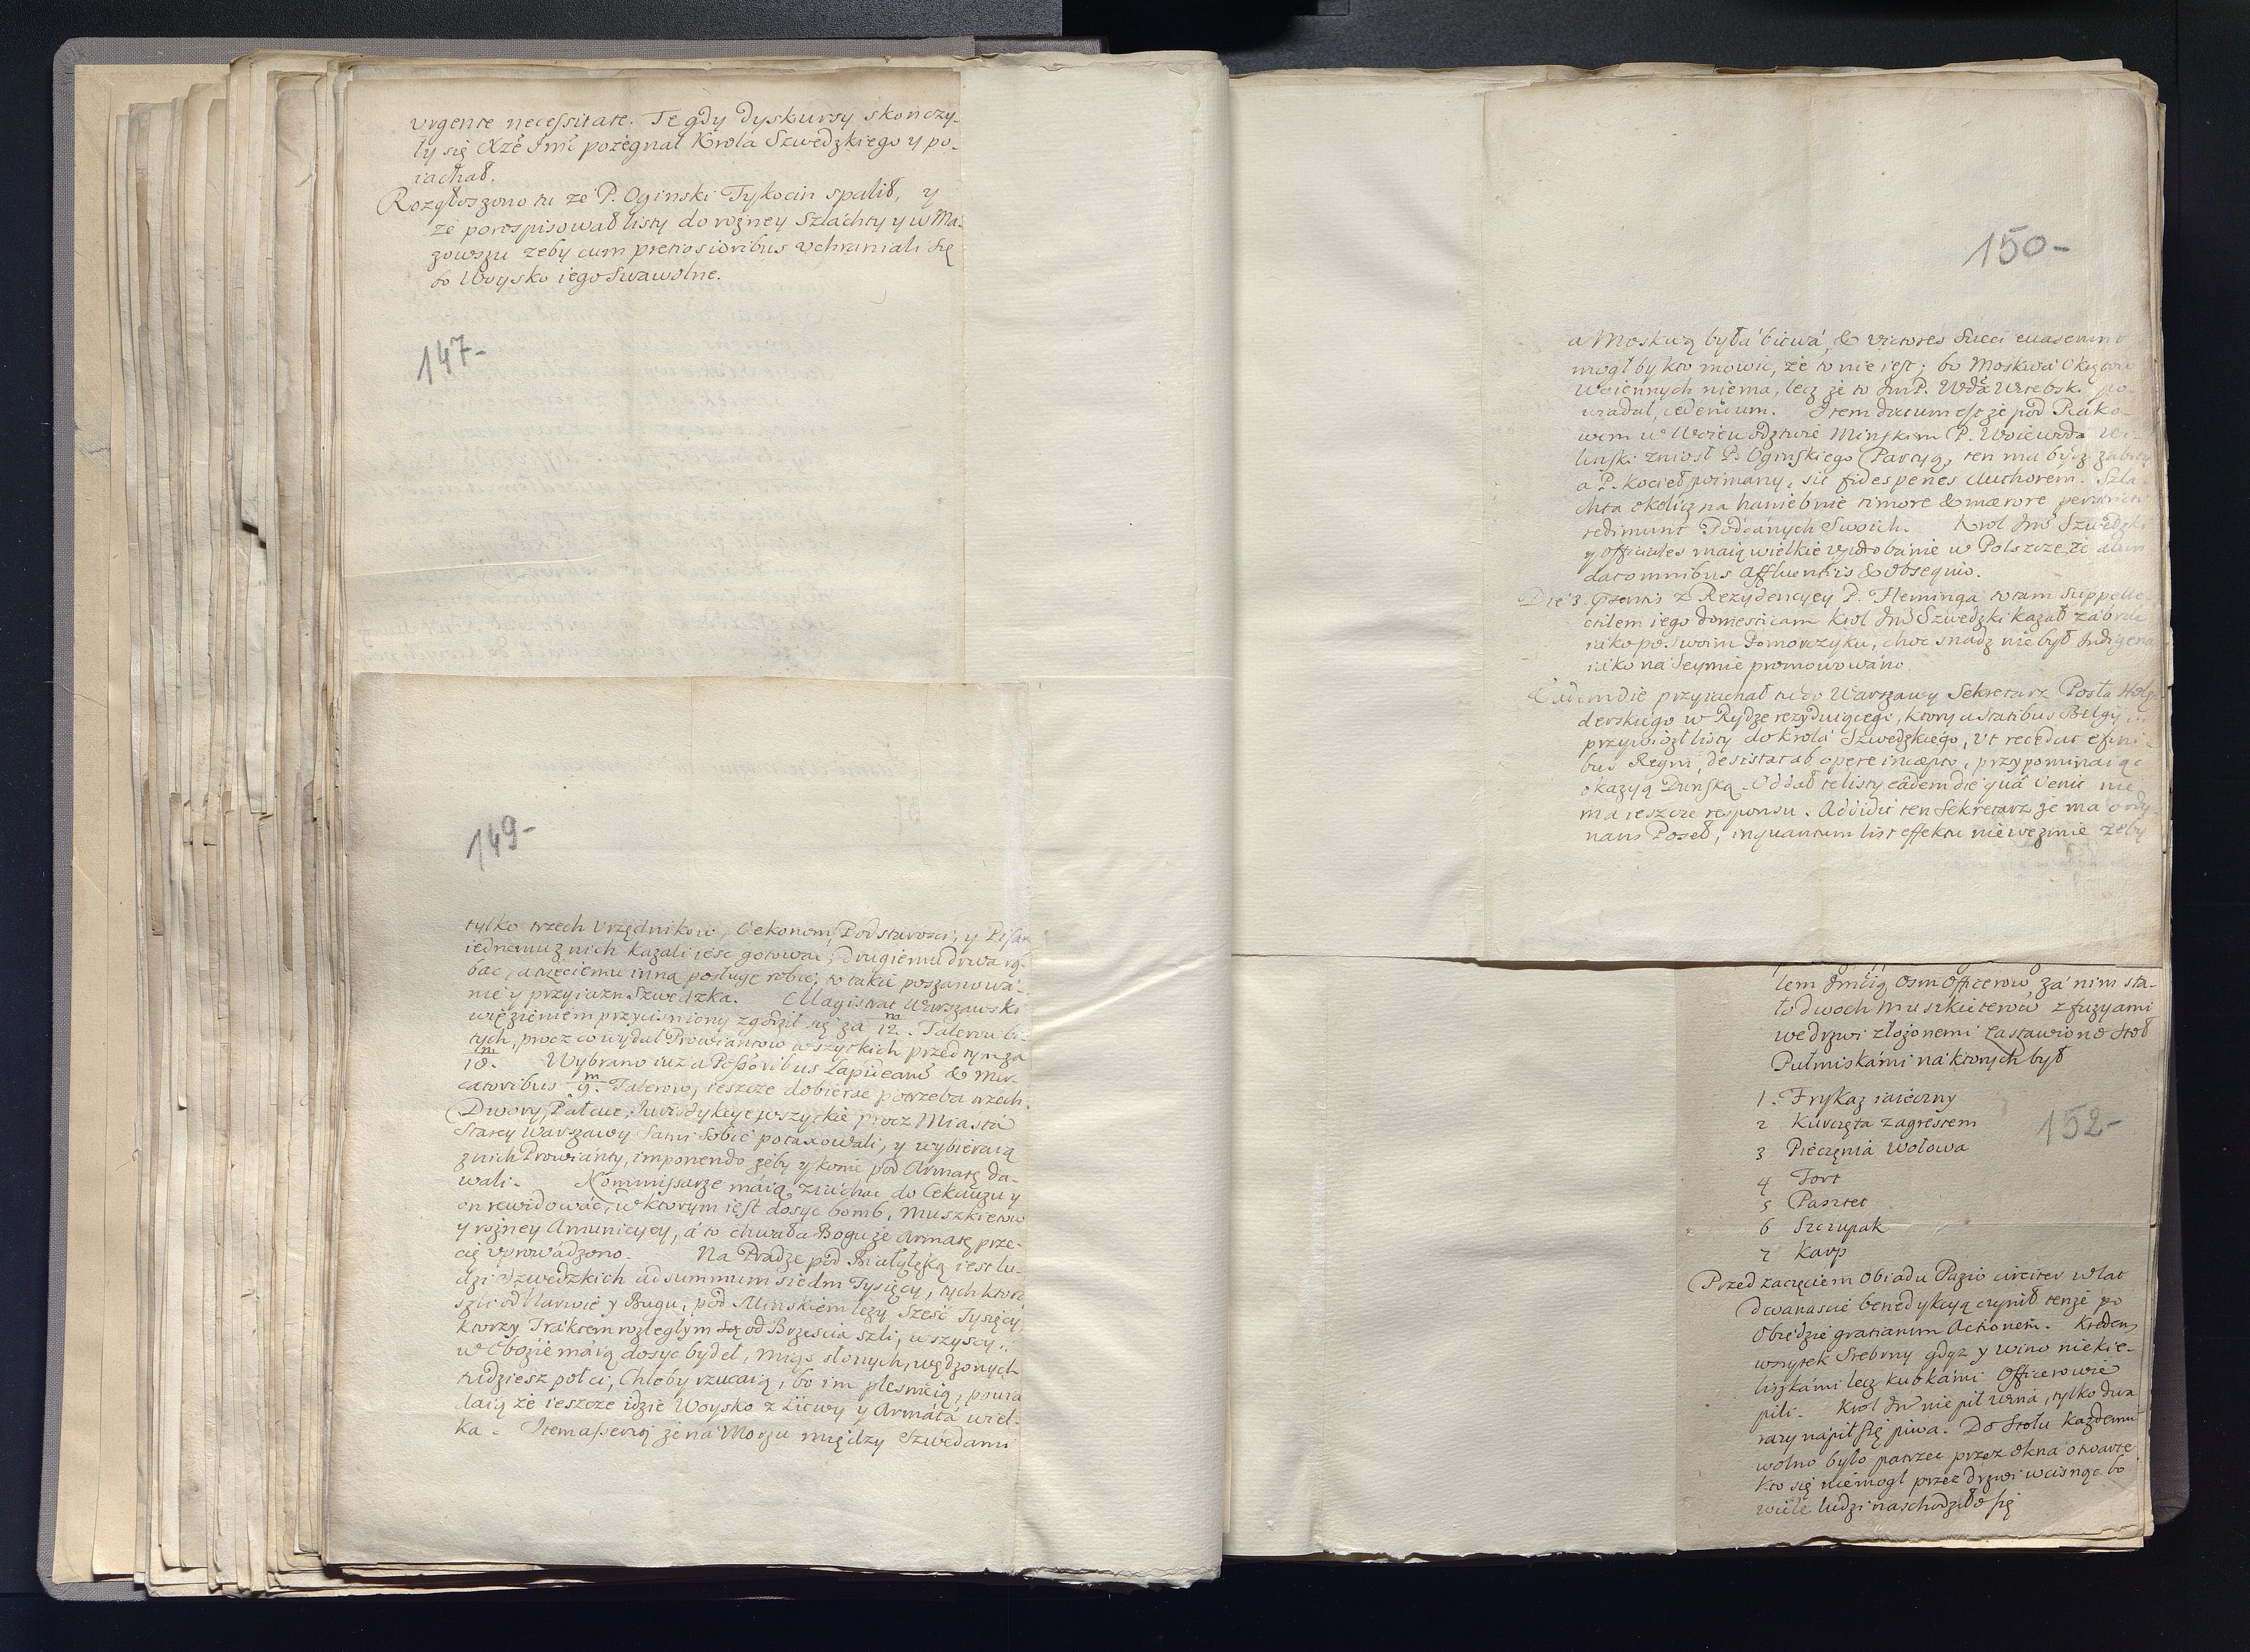 urgente necessitate. Te gdy dyskursy skonczy-
ły się Xżę Jmć pożegnał Krola Szwedzkiego y po-
iachał.
Rozgłoszono tu ze P. Oginski Tykocin spalił, y
że porospisował listy do rożney Szlachty y w Ma-
zowszu żeby cum pretiosioribus vchraniali się
bo Woysko iego Swawolne.
147-
149-
tylko trzech Vrzędnikow, Oekonom, Podstarosci, y Pisarz
iednemu z nich kazali iesc gotowac, drugiemu drwa rą-
bac, a trzeciemu inną posługę robic, to takie poszanowa-
nie y przyiazn Szwedzka. Magistrat Warszawski
więzieniem przycisniony zgodził się za 12. m Talerow bi-
tych, procz co wydał Prowiantow wszytkich przed tym za
18. m Wybrano iuz a Possoribus Lapideanũ & Mer-
catoribus 9. m Talerow, ieszcze dobierac potrzeba trzech.
Dwory, Pałace, Jurisdykcye wszytkie procz Miasta
Starey Warszawy sami sobie potaxowali, y wybieraią
z nich Prowianty, imponendo żeby y konie pod Armatę da-
wali. Kommissarze maią ziachac do Cekauzu y
on rewidowac, w ktorym iest dosyc bomb, Muszkietow
y rożney Amunicyey, a to chwała Bogu że Armatę prze-
cię vprowadzono. Na Pradze pod Białłęką iest lu-
dzi Szwedzkich ad summum siedm Tysięcy, tych ktorzi
szli od Narwie y Bugu, pod Minskiem leży Szesc Tysięcy
ktorzy Traktem rozległym od Brzescia szli, wszyscy
w Obozie maią dosyc bydeł, mięs słonych, wędzonych
tudziesz połci, Chleby rzucaią, bo im plesnieią, powia
daią że ieszcze idzie Woysko z Litwy y Armata wiel-
ka. Item asserũt że na Morzu między Szwedami
150-
a Moskwą była bitwa, & victores Sueci evaserunt
mogłby kto mowic, że to nie iest, bo Moskwa Okrętow
Woiennych niema, lecz że to JmP. Wda Witebsk. po-
wiadał, credendum. Item dictum est że pod Rako-
wem w Woiewodztwie Minskiem P. Woiewoda Wi-
lenski zniosł P. Oginskiego Partyą, ten ma bydz zabity
a P. Kocieł poimany, sit fides penes Authorem. Szla-
chta okoliczna haniebnie timore & mærore
redimunt Poddanych Swoich. Krol Jmć Szwedzki
y Officiales maią wielkie vpodobanie w Polszcze że
dat omnibus affluentiis & obsequio.
Die 3. z Rezydencyey P. Fleminga totam suppelle-
ctilem iego domesticam Krol Jmć Szwedzki kazał zabrac
iako po swoim Pomorczyku, choc snadz nie był Indigena
iako na Seymie promowowano.
Eadem die przyiachał tu do Warszawy Sekretarz Posła Holen-
derskiego w Rydze rezyduiącego, ktory a Statibus Belgij
przywiozł listy do Krola Szwedzkiego, vt recedat e fini-
bus Regni, desistat ab opere incæpto, przypominaiąc
okazyą Dunską. Oddał te listy eadem die qua venit nie
ma ieszcze responsu. Addidit ten Sekretarz że ma ordy
nans Poseł, inquantum list effektu niewezmie żeby
tem Jmścią osm Officerow, za nim sta-
ło dwoch muszkieterow z fuzyami
we drzwi złożonemi Zastawiono stoł
Pułmiskámi na ktorych był
1. Frykaz iaieczny
2 Kurczęta z agrestem
3 Pieczenia Wołowa
152-
4 Tort
5 Pasztet
6 Szczupak
7 Karp
Przed zaczęciem Obiadu Pazio circiter w lat
dwanascie benedykcyą czynił tenże po
Obiedzie gratiarum Actionem. Kredens
wszytek Srebrny gdyz y wino niekie-
liszkámi lecz kubkámi Officerowie
pili. Krol Jmć nie pił wina, tylko dwa
razy napił się piwa. Do Stołu każdemu
wolno było patrzec przez okna otwarte
kto się niemogł przez drzwi wcisnąc bo
wiele ludzi naschodziło się